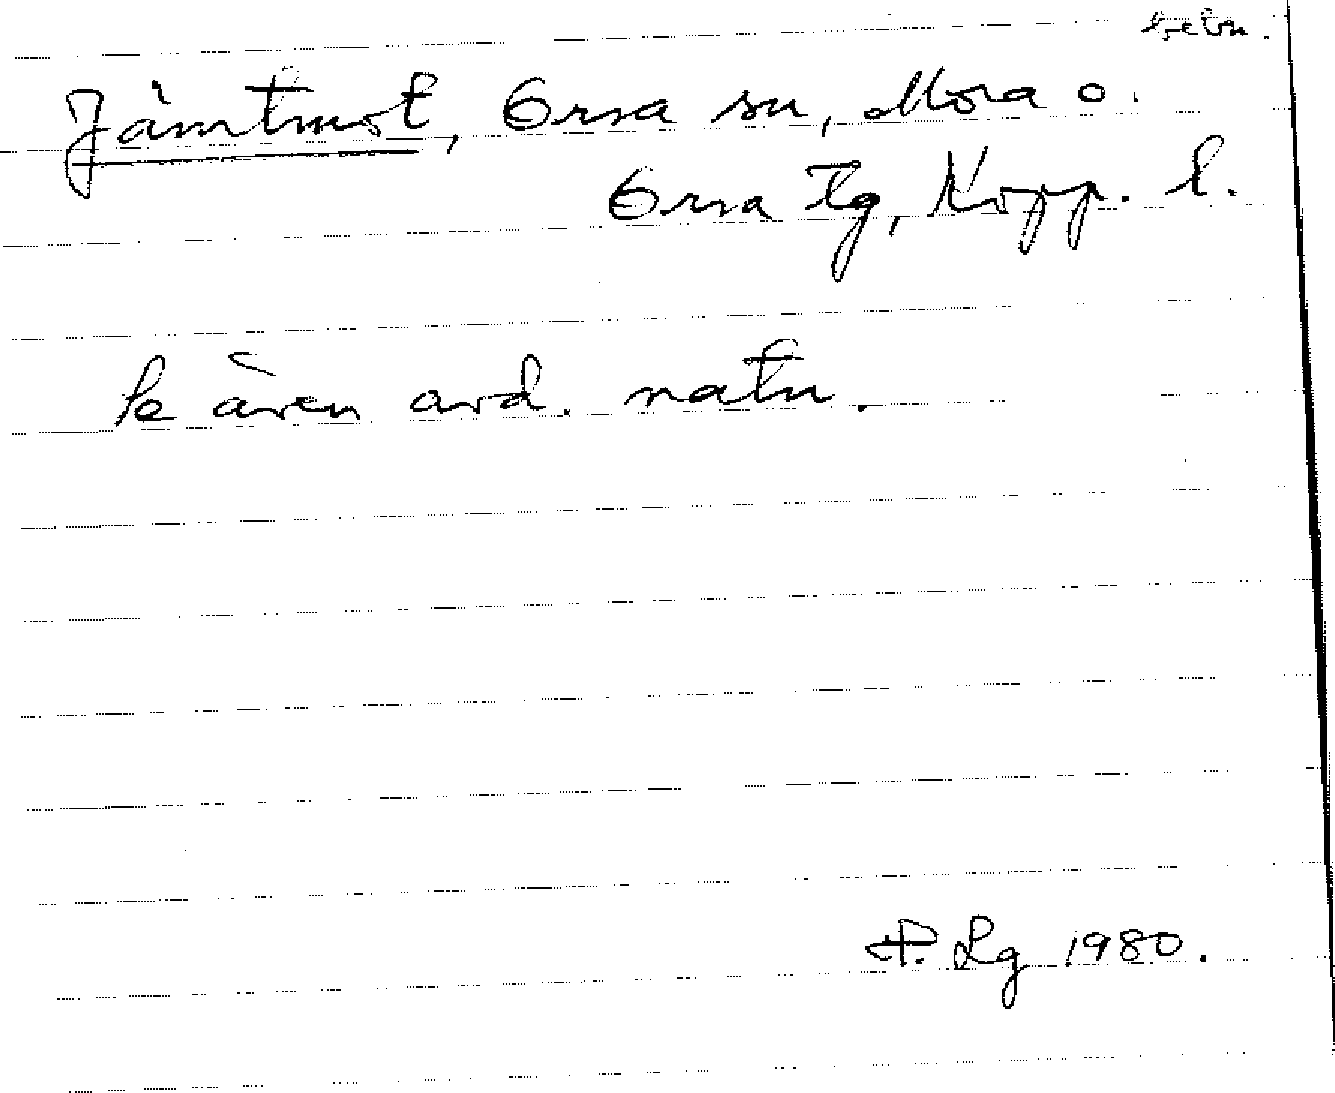 bebn.
Jämtmot, Orsa sn, Mora o.
Orsa tg, Kopp. l.
Se även avd. natn.
P. Lg 1980.